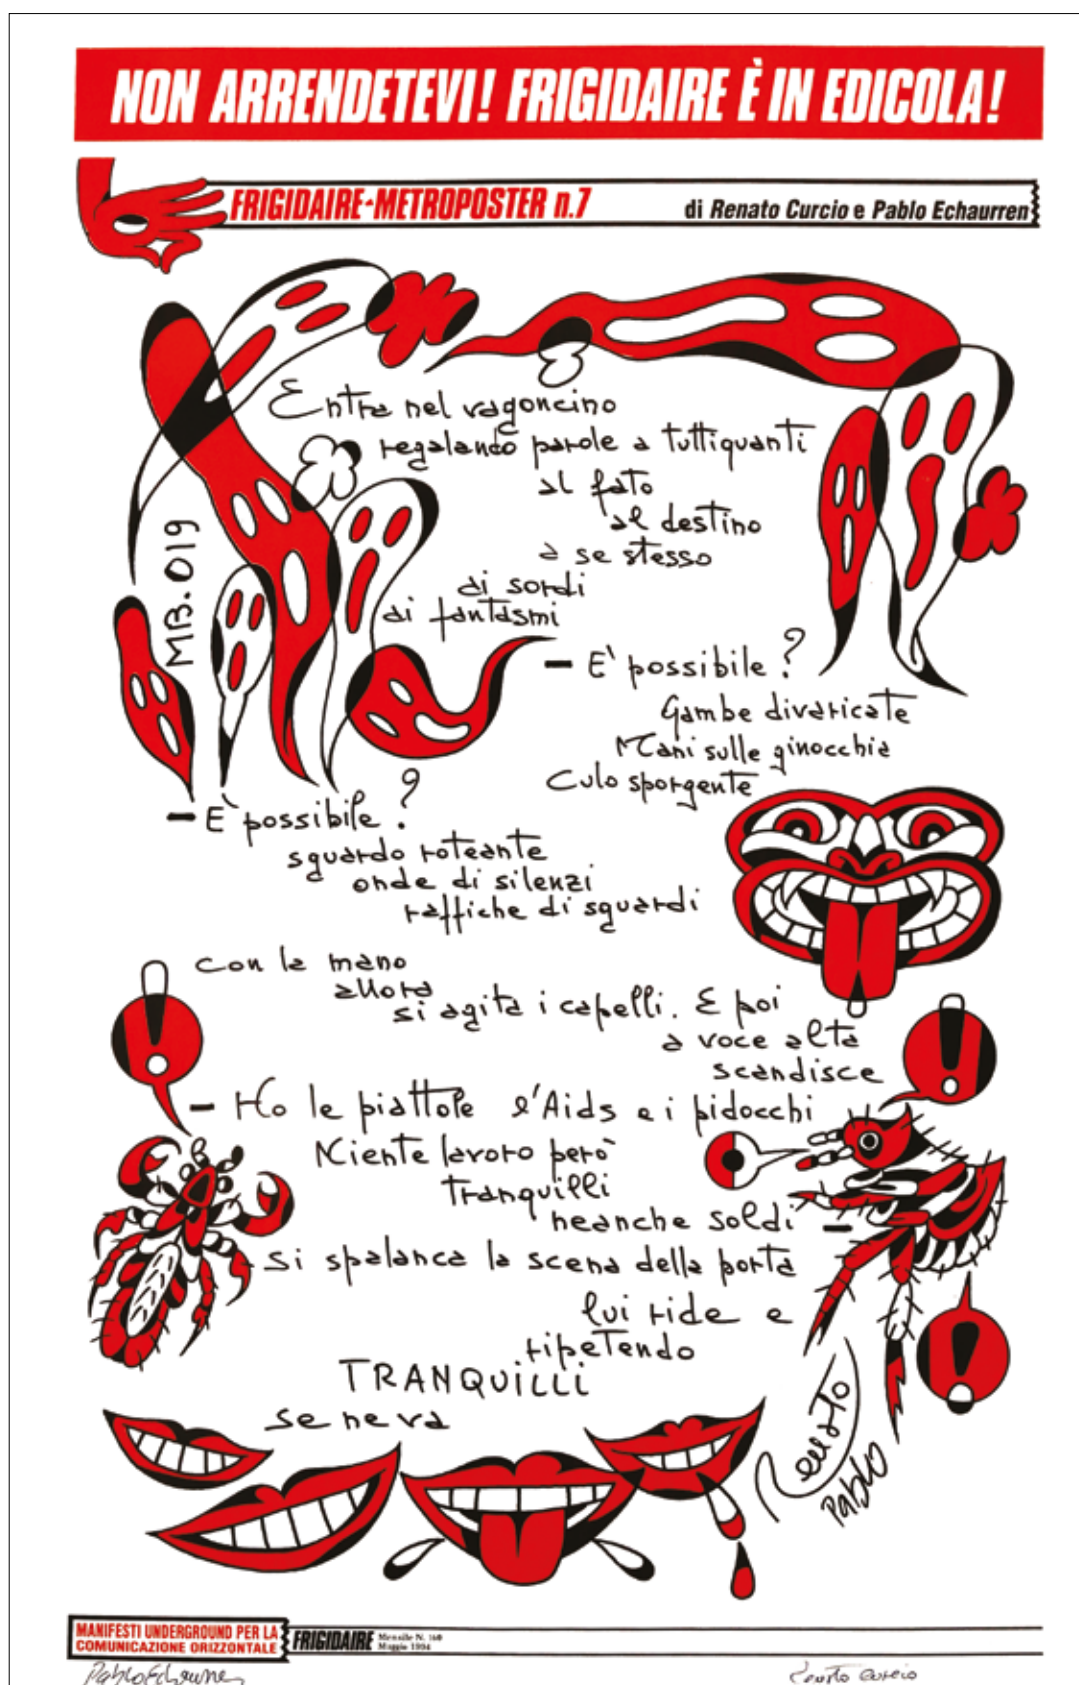 NON ARRENDETEVI! FRIGIDAIRE È IN EDICOLA!
FRIGIDAIRE-METROPOSTER n.7
di Renato Curcio e Pablo Echaurren
Entra nel vagoncino
regalando parole a tuttiquanti
al fato
al destino
a se stesso
ai sordi
ai fantasmi
MB.019
— E' possibile?
Gambe divaricate
Mani sulle ginocchia
Culo sporgente
— E' possibile?
sguardo roteante
onde di silenzi
raffiche di sguardi
con la mano
allora
si agita i capelli. E poi
a voce alta
scandisce
— Ho le piattole l'Aids e i pidocchi
Niente lavoro però
Tranquilli
neanche soldi —
Si spalanca la scena della porta
lui ride e
ripetendo
TRANQUILLI
se ne va
Renato
Pablo
MANIFESTI UNDERGROUND PER LA
COMUNICAZIONE ORIZZONTALE
FRIGIDAIRE
Mensile N. 160
Maggio 1994
Pablo Echaurren
Renato Curcio